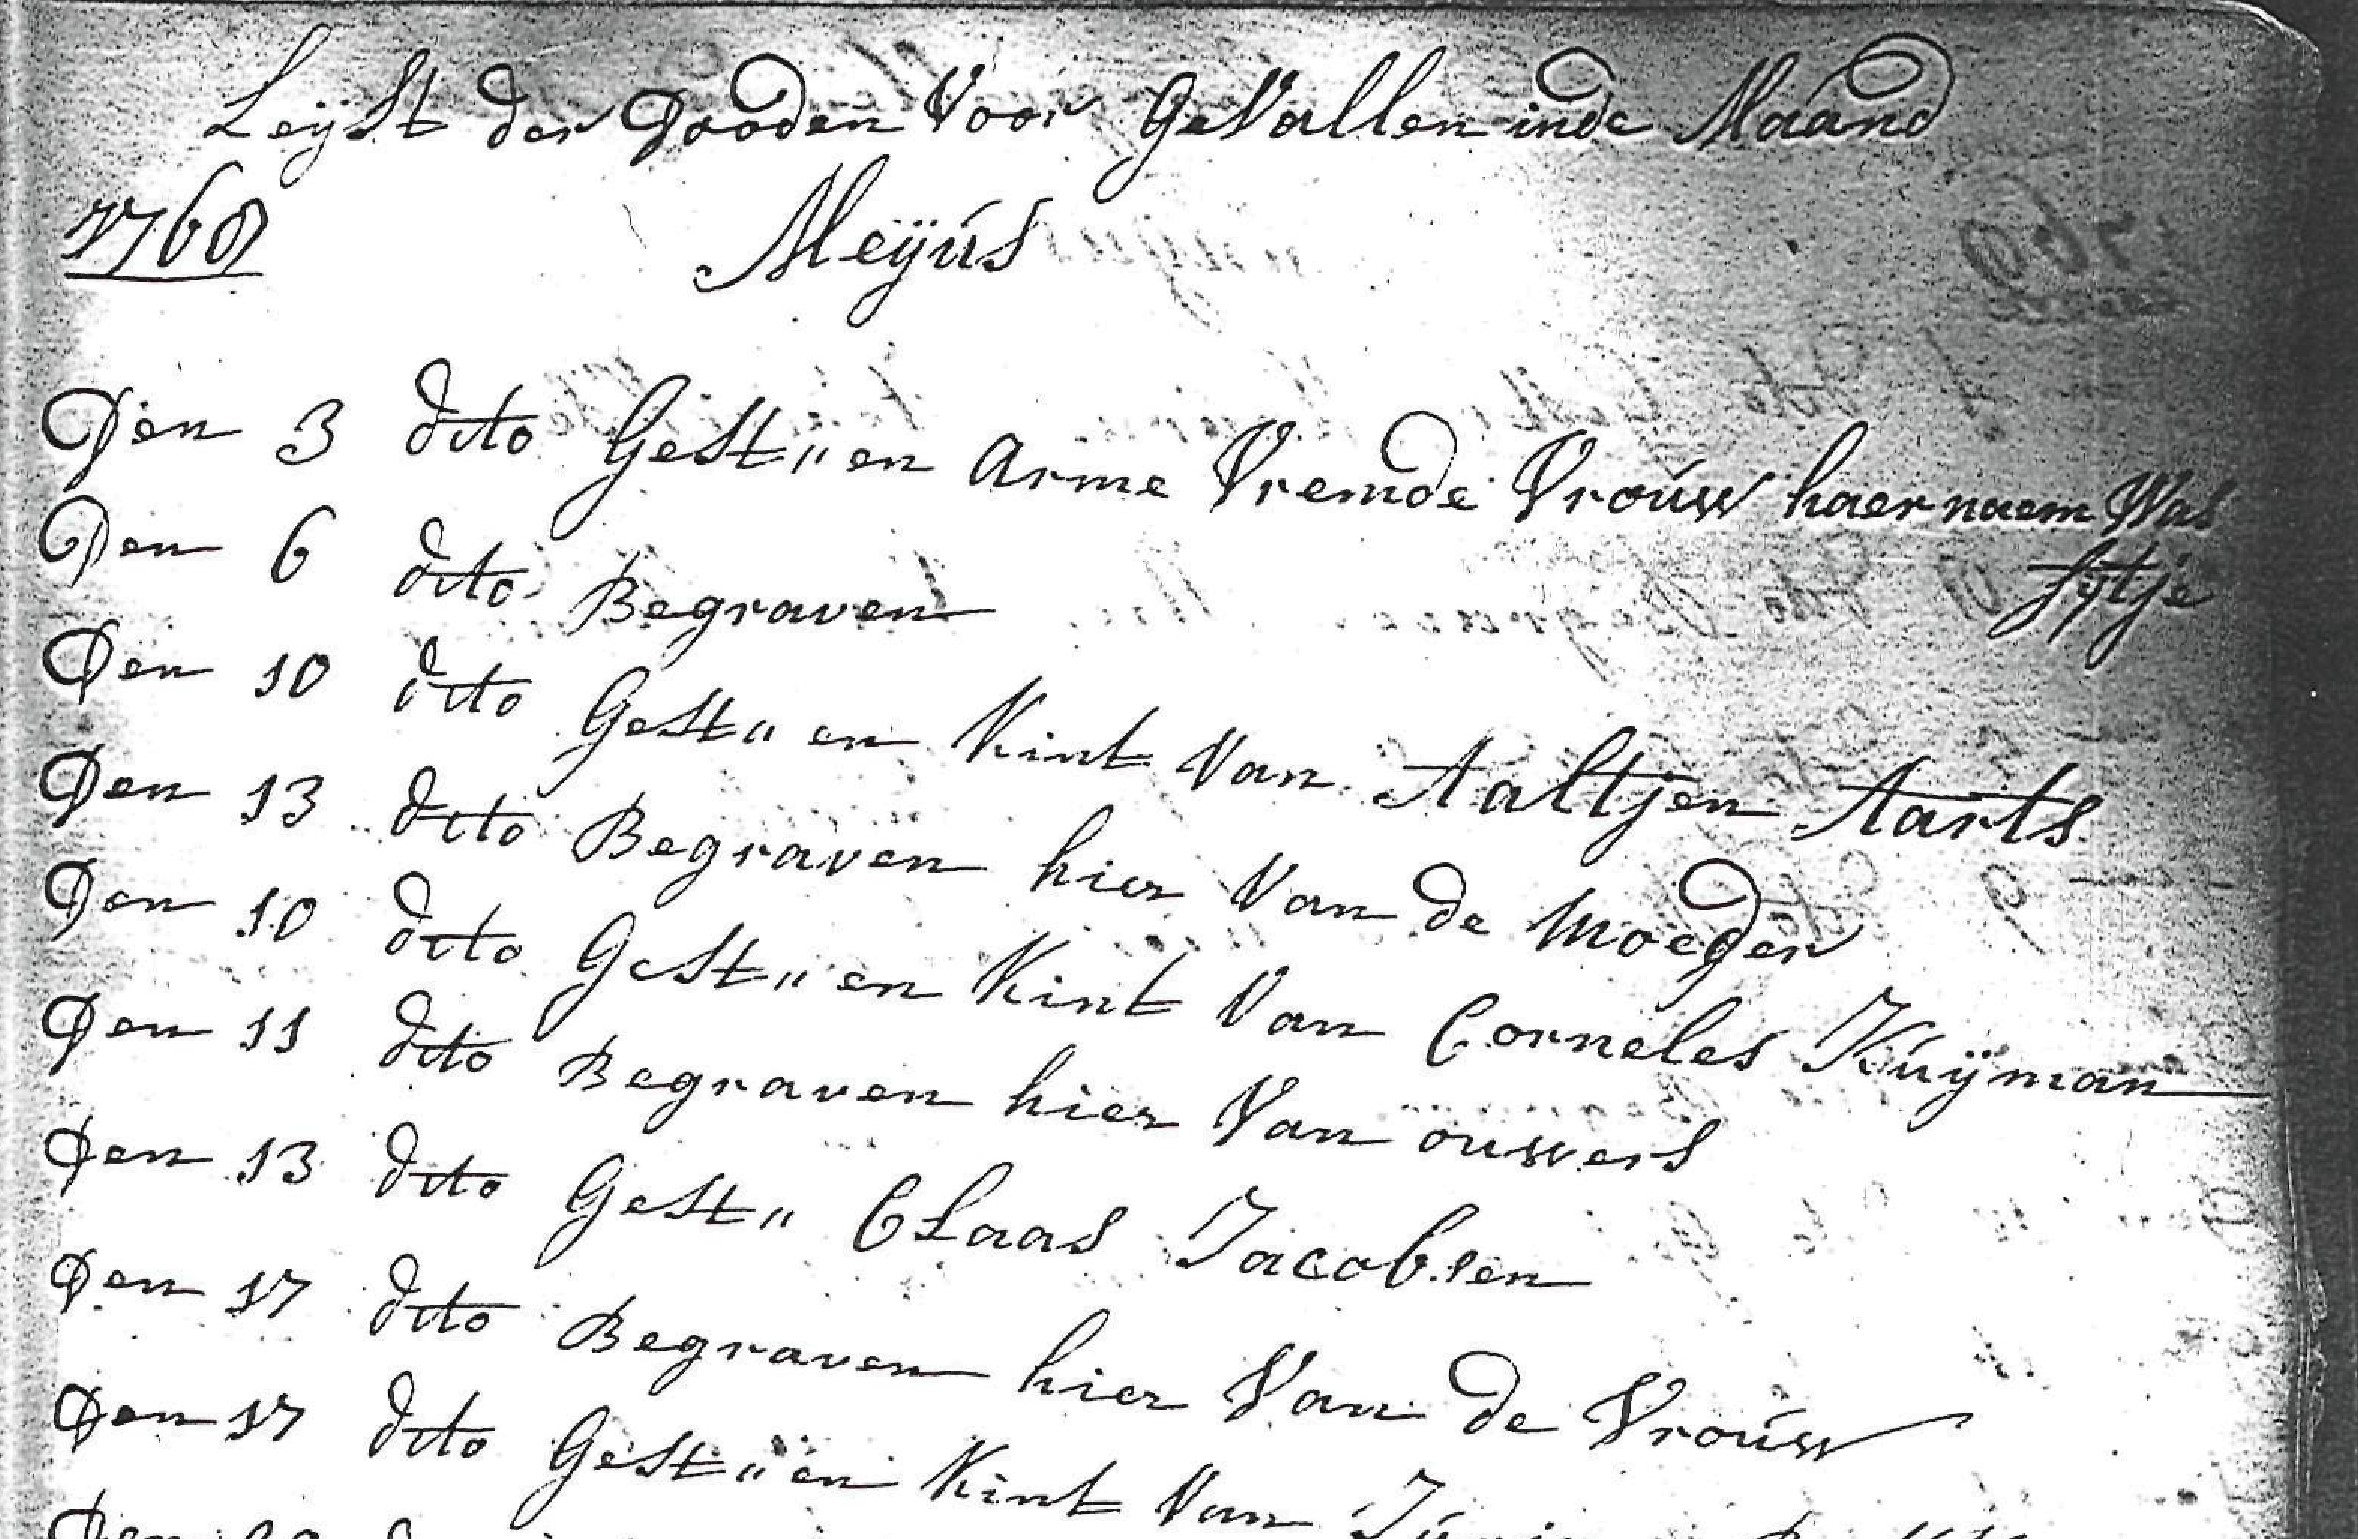 Leÿst der Dooden Voor GeVallen inde Maand
1768 Meÿus
Den 3 dito Gest„ en arme Vremde Vrouw haer naem Was
Sÿtje
Den 6 dito Begraven
Den 10 dito Gest„ en Kint Van Aaltjen Aarts
Den 13 dito Begraven hier Van de moeder
Den 10 dito Gest„ en Kint Van Corneles Kuÿman
Den 11 dito Begraven hier Van ouwers
Den 13 dito Gest„ Claas Jacobsen
Den 17 dito Begraven hier Van de Vrouw
Den 17 dito Gest„ en Kint Van
Den